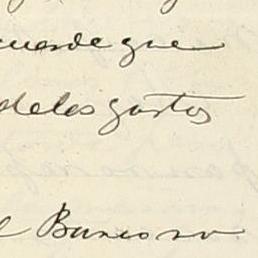 cuerde que
de los gastos
l Banco no